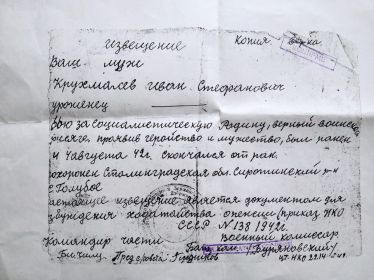 Извещение Копия верна
Ваш муж
Крухмалев Иван Стефанович
уроженец
бою за социалистическую Родину, верный воинской
присяге, проявив геройство и мужество, был ранен
и 4 августа 42г. скончался от ран.
похоронен Сталинградская обл. Сиротинский р-н
с. Голубое
настоящее извещение является документом для
возбуждения ходатайства о пенсии (приказ НКО
СССР № 138 1942г.
Командир части Военный комиссар
Бат. ком. /Буряновский/